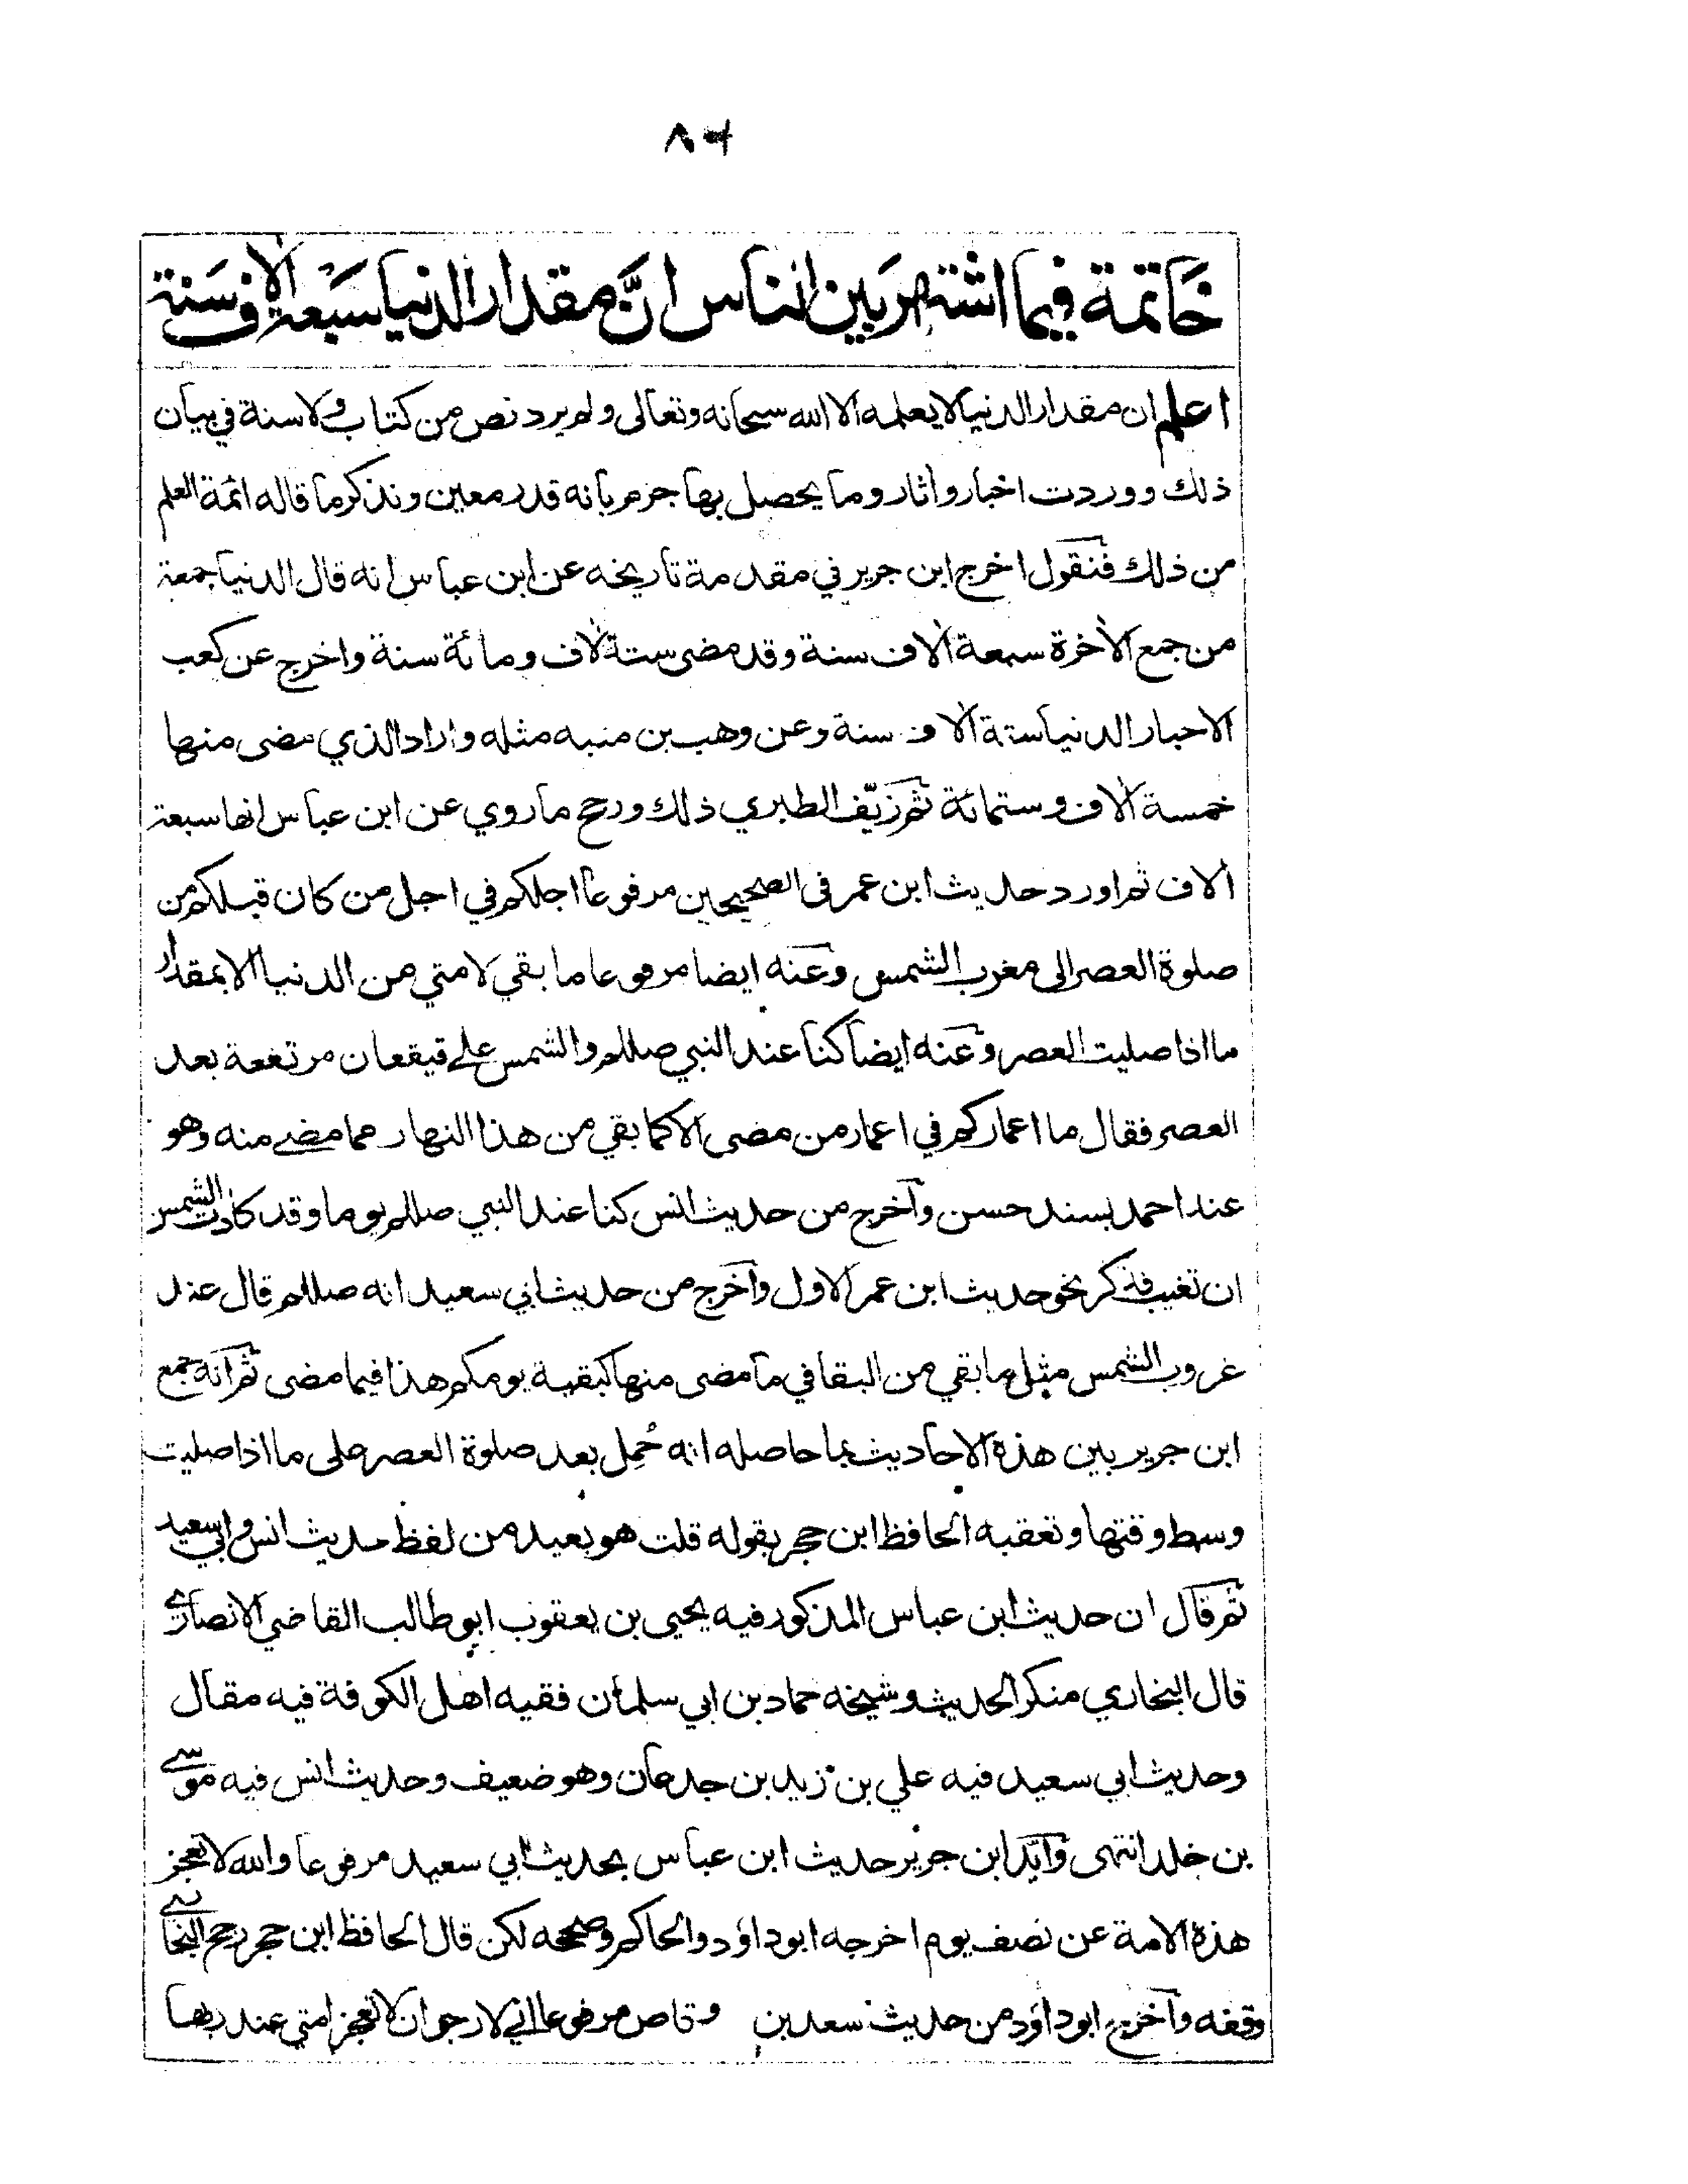 ٨٤
خَاتمة فيما اشتهر بَين الناس انَّ مقدار الدنيا سَبعة اٰلاف سَنة
اعلم ان مقدار الدنيا لا يعلمه الا الله سبحانه وتعالى ولم يرد نص من كتاب ولا سنة في بيان
ذلك ووردت اخبار وآثار وما يحصل بها جزم بانه قدر معين ونذكر ما قاله ائمة العلم
من ذلك فنقول اخرج ابن جرير في مقدمة تاريخه عن ابن عباس انه قال الدنيا جمعة
من جمع الاٰخرة سبعة اٰلاف سنة وقد مضى ستة اٰلاف ومائة سنة واخرج عن كعب
الاحبار الدنيا ستة اٰلاف سنة وعن وهب بن منبه مثله واراد الذي مضى منها
خمسة اٰلاف وستمائة ثم زيّف الطبري ذلك ورجح ما روي عن ابن عباس انها سبعة
اٰلاف ثم اورد حديث ابن عمر فى الصحيحين مرفوعا اجلكم في اجل من كان قبلكم من
صلوة العصر الى مغرب الشمس وعنه ايضا مرفوعا ما بقي لامتي من الدنيا الا بمقدار
ما اذا صليت العصر وعنه ايضا كنا عند النبي صللم والشمس على قيقعان مرتفعة بعد
العصر فقال ما اعماركم في اعمار من مضى الا كما بقي من هذا النهار مما مضى منه وهو
عند احمد بسند حسن وآخرج من حديث انس كنا عند النبي صللم يوما وقد كادت الشمس
ان تغيب فذكر نحو حديث ابن عمر الاول وآخرج من حديث ابي سعيد انه صللم قال عند
غروب الشمس مثل ما بقي من البقا في ما مضى منها كبقية يومكم هذا فيما مضى ثم انه جمع
ابن جرير بين هذه الاحاديث بما حاصله انه حُمِل بعد صلوة العصر على ما اذا صليت
وسط وقتها وتعقبه الحافظ ابن حجر بقوله قلت هو بعيد من لفظ حديث انس وابي سعيد
ثم قال ان حديث ابن عباس المذكور فيه يحيى بن يعقوب ابو طالب القاضي الانصاري
قال البخاري منكر الحديث وشيخه حماد بن ابي سلمان فقيه اهل الكوفة فيه مقال
وحديث ابي سعيد فيه علي بن زيد بن جدعان وهو ضعيف وحديث انس فيه موسى
بن خلد انتهى وآيّد ابن جرير حديث ابن عباس بحديث ابي سعيد مرفوعا والله لا تعجز
هذه الامة عن نصف يوم اخرجه ابو داؤد والحاكم وصححه لكن قال الحافظ ابن حجر رجح البخاري
وقفه وآخرج ابو داؤد من حديث سعد بن وقاص مرفوعا اني لارجو ان لا تعجز امتي عند ربها